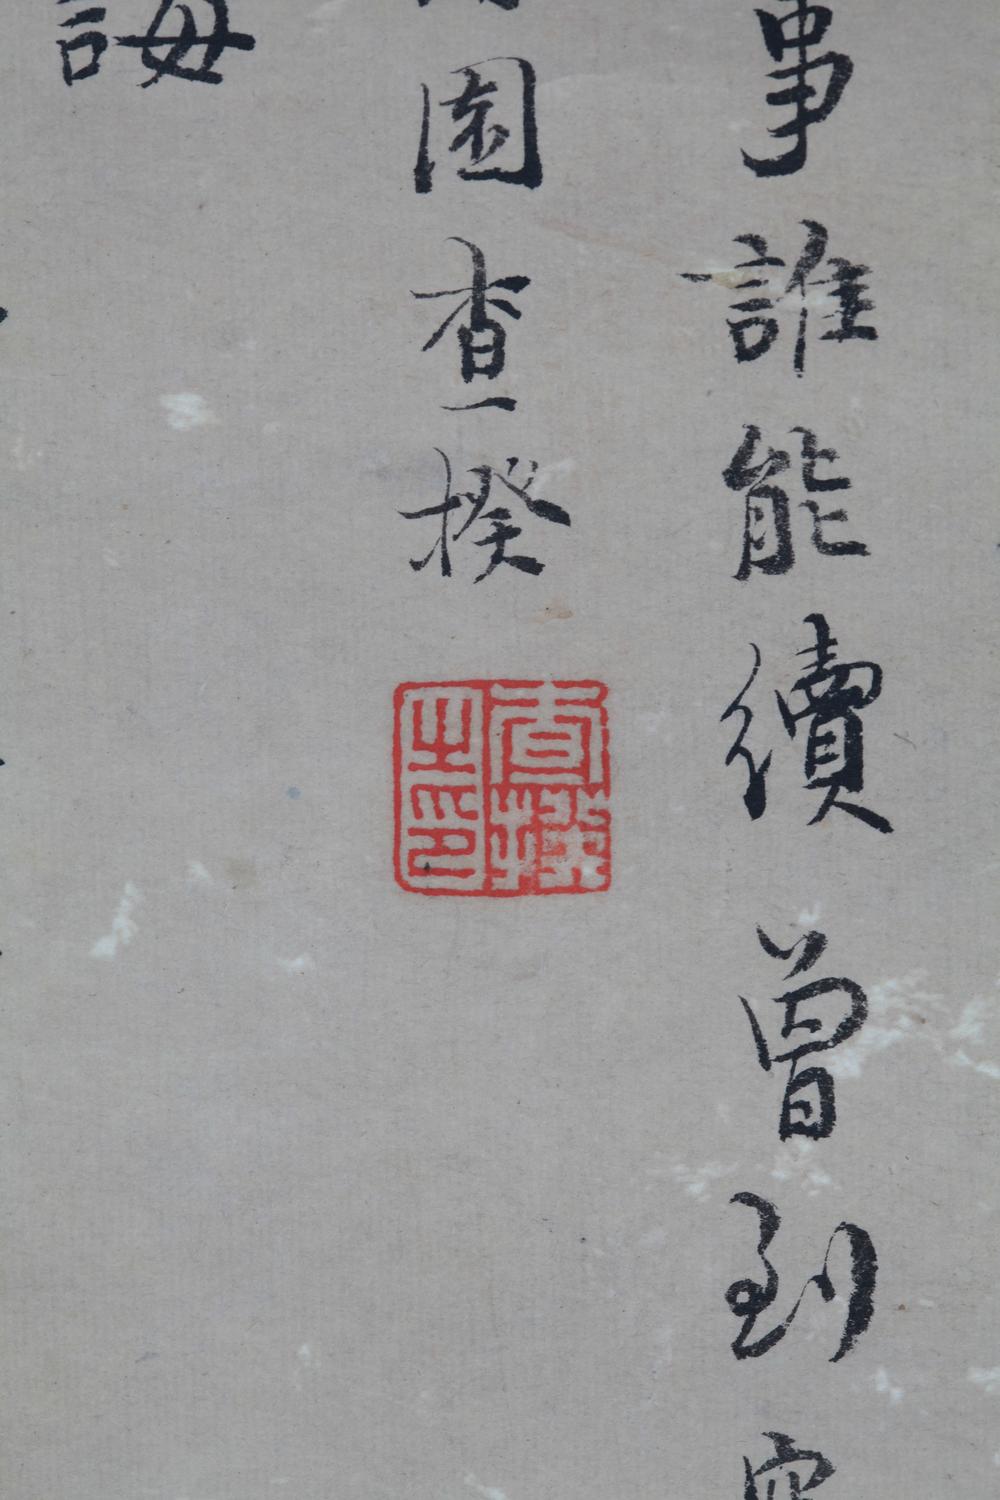 事誰能續曾到
園查揆
查揆之印
誨